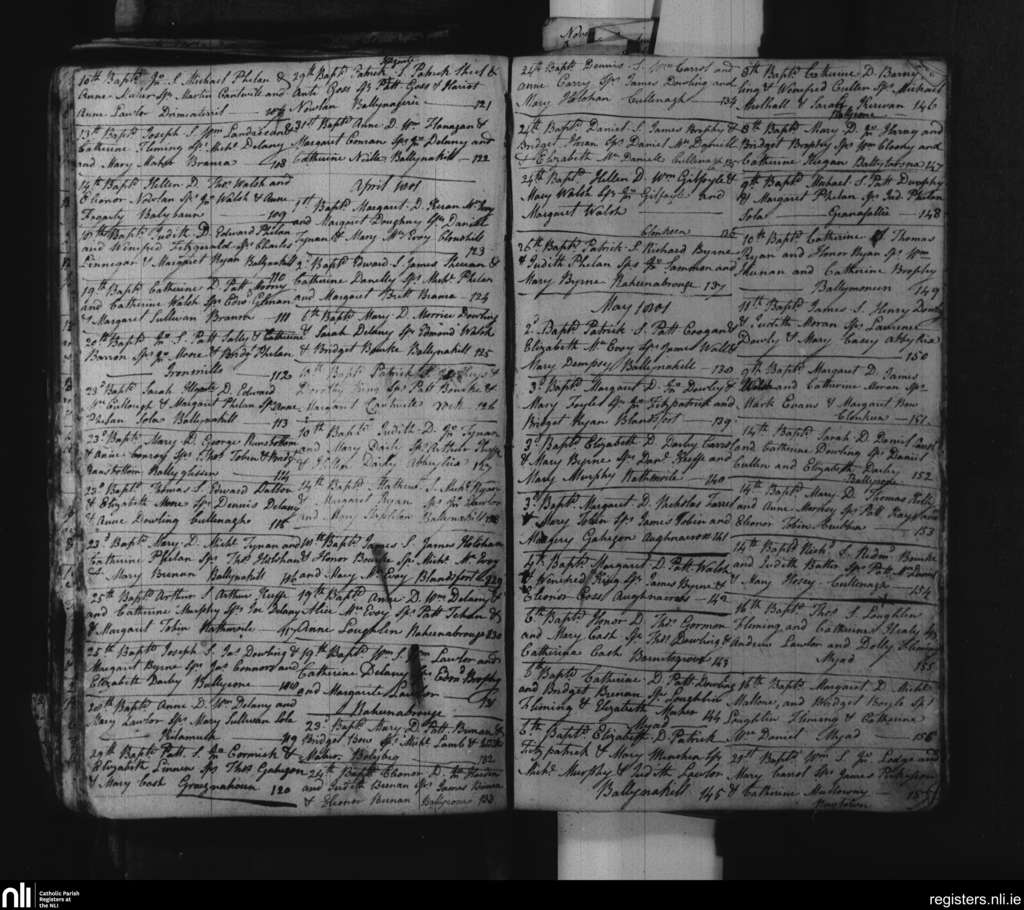 10th Baptd Jno S. Michael Phelan &
Anne Maher Sps Martin Cantwile and
Anne Lawlor Demcaterril 107
13th Baptd Joseph S. Wm Landers and
Catherine Fleming Sps Michl Delany
and Mary Maher Branra 108
14th Baptd Hellen D. Thos Walsh and
Eleonor Nowlan Sps Jno Walsh & Anne
Fogarty Balybaun 109
Baptd Judith D. Edward Phelan
and Winifred Fitzgerald Sps Charles
Linnegar & Margaret Ryan Ballynakill
110
19th Baptd Catherine D. Patt Moony
and Catherine Walsh Sps Edwd Edman
& Margaret Sullivan Branra 111
20th Baptd Jno S. Patt Lally & Catherine
Barron Sps Jno Mone & Bridgt Phelan
Ironmills 112
23d Baptd Sarah D. Edward
McCullough & Margaret Phelan Sps Anne
Phelan Sola Ballynakill 113
23d Baptd Mary D. George Ransbottom
& Anne Conroy Sps Thos Tobin & Bridgt
Ransbottom Ballyglissen
114
23d Baptd Thomas S. Edward Dalton
& Elizabeth Mone Sps Dennis Delany
& Anne Dowling Cullenagho 115
23d Baptd Mary D. Michl Tynan and
Catherine Phelan Sps Thos Holohan
& Mary Brenan Ballynakill 116
25th Baptd Arthur S. Arthur Keeffe
and Catherine Murphy Sps Jno Delany
& Margaret Tobin Rathmoile 117
25th Baptd Joseph S. Jno Dowling &
Margaret Byrne Sps Jno Connors and
Elizabeth Darby Ballyrone 118
20th Baptd Anne D. Wm Delany and
Mary Lawlor Sps Mary Sullivan Sola
Kilamuck 119
29th Baptd Patt S. Jno Cormick &
Elizabeth Linnen Sps Thos Gahegan
& Mary Cash Graignahoun 120
29th Baptd Patrick S. Patrick Sheel &
Anti Goss Sps Patt Goss & Hariot
Nowlan Ballynaferie 121
31st Baptd Anne D. Wm Flanagan &
Margaret Conran Sps Jno Delany and
Catherine Neile Ballynakill 122
April 1801
1st Baptd Margaret D. Kiran McEvoy
and Margaret Doughny Sps Daniel
Tynan & Mary McEvoy Clonshill
123
2d Baptd Edward S. James Sheean &
Catherine Danelly Sps Michl Phelan
and Margaret Britt Branra 124
6th Baptd Mary D. Morrice Dowling
& Sarah Delany Sps Edmond Walsh
& Bridget Bourke Ballynakill 125
10th Baptd Patrick S. &
Dorothy King Sps Patt Bourke &
Margaret Cantwile 126
10th Baptd Judith D. Jno Tynan
and Mary Darby Sps Arthur Keeffe
& Hellen Darby Abbyliae 127
14th Baptd Mathew S. Michl Ryan
& Margaret Ryan Sps Jno Lawlor
and Mary Ballynakill 128
14th Baptd James S. James Holohan
& Honor Bourke Sps Michl McEvoy
and Mary McEvoy Blandsfort 129
19th Baptd Anne D. Wm Delany &
Alice McEvoy Sps Patt Tehan &
Anne Loughlin Raheenabrouge 130
19th Baptd Wm S. Wm Lawlor and
Catherine Delany Sps Edmd Brophy
and Margarite Lawlor
Raheenabrouge 131
23d Baptd Mary D. Patt Brenan &
Bridget Bow Sps Michl Lamb &
Maher Bolybeg 132
24th Baptd Eleonor D. Harden
and Judith Brenan Sps James Brenan
& Eleonor Brenan Ballyrone 133
24th Baptd Dennis S. Wm Carrol and
Anne Carry Sps James Dowling and
Mary Holohan Cullenagh 134
24th Baptd Daniel S. James Brophy &
Bridget Horan Sps Daniel McDaniell
& Elizabeth McDaniell Cullenagh 135
24th Baptd Hellen D. Wm Gilfoyle &
Mary Walsh Sps Jno Gilfoyle and
Margaret Walsh
Clonkeen 136
26th Baptd Patrick S. Richard Byrne
& Judith Phelan Sps Jno Lammon and
Mary Byrne Raheenabrouge 137
May 1801
2d Baptd Patrick S. Patt Coogan &
Elizabeth McEvoy Sps James Wall &
Mary Dempsy Ballynakill 138
3d Baptd Margaret D. Jno Dowly &
Mary Foylet Sps Jno Fitzpatrick and
Bridget Ryan Blandsfort 139
3d Baptd Elizabeth D. Darby Carrol
& Mary Byrne Sps Danl Keeffe and
Mary Murphy Rathmoile 140
3d Baptd Margaret D. Nicholas Farrel
& Mary Tobin Sps James Tobin and
Margery Gahegan Aughnarross 141
4th Baptd Margaret D. Patt Walsh
& Winifred Sps James Byrne &
Eleonor Goss Aughnaross 142
6th Baptd Honor D. Thos Gormon
and Mary Cash Sps Thos Dowling &
Catherine Cash Barnetsgrove 143
6th Baptd Catherine D. Patt Dowling
and Bridget Brenan Sps Loughlin
Fleming & Elizabeth Maher
Myad 144
6th Baptd Elizabeth D. Patrick
Fitzpatrick & Mary Minchin Sps
Michl Murphy & Judith Lawlor
Ballynakill 145
8th Baptd Catherine D. Barny
King & Winefred Cullen Sps Michael
Mulhall & Sarah Kirwan 146
Balyrone
8th Baptd Mary D. Jno Horag and
Bridget Brophy Sps Wm Cloosky and
Catherine Hegan Ballytobin 147
9th Baptd Michael S. Patt Dunphy
& Margaret Phelan Sps Jud. Phelan
Sola Granafallie 148
10th Baptd Catherine D. Thomas
Ryan and Honor Ryan Sps Wm
Heenan and Catherine Brophy
Ballymoreen 149
11th Baptd James S. Henry Dowly
& Judith Moran Sps Laurence
Dowly & Mary Casey Abbylia
150
9th Baptd Margaret D. James
Walsh and Catherine Moran Sps
Mark Evans & Margaret Bow
Clonkeen 151
14th Baptd Sarah D. Daniel
and Catherine Dowling Sps Daniel
Cullen and Elizabeth Darby
Ballyrone 152
14th Baptd Mary D. Thomas Kelly
and Anne Morishy Sps Patt
Eleonor Tobin 153
14th Baptd Richd S. Redmd Bourke
and Judith Butler Sps Patt McDaniel
& Mary Hosey Cullenagh 154
16th Baptd Thos S. Loughlin
Fleming and Catherine Healy Sps
Andrew Lawlor and Dolly Fleming
Myad 155
16th Baptd Margaret D. Michl
Mallone, and Bridget Boyle Sps
Loughlin Fleming & Catherine
McDaniel Myad 156
21st Baptd Wm S. Jno Lodge and
Mary Carrol Sps James Fitzpatrick
& Catherine Mulloway 157
Newtown
nli
Catholic Parish
Registers at
the NLI
registers.nli.ie